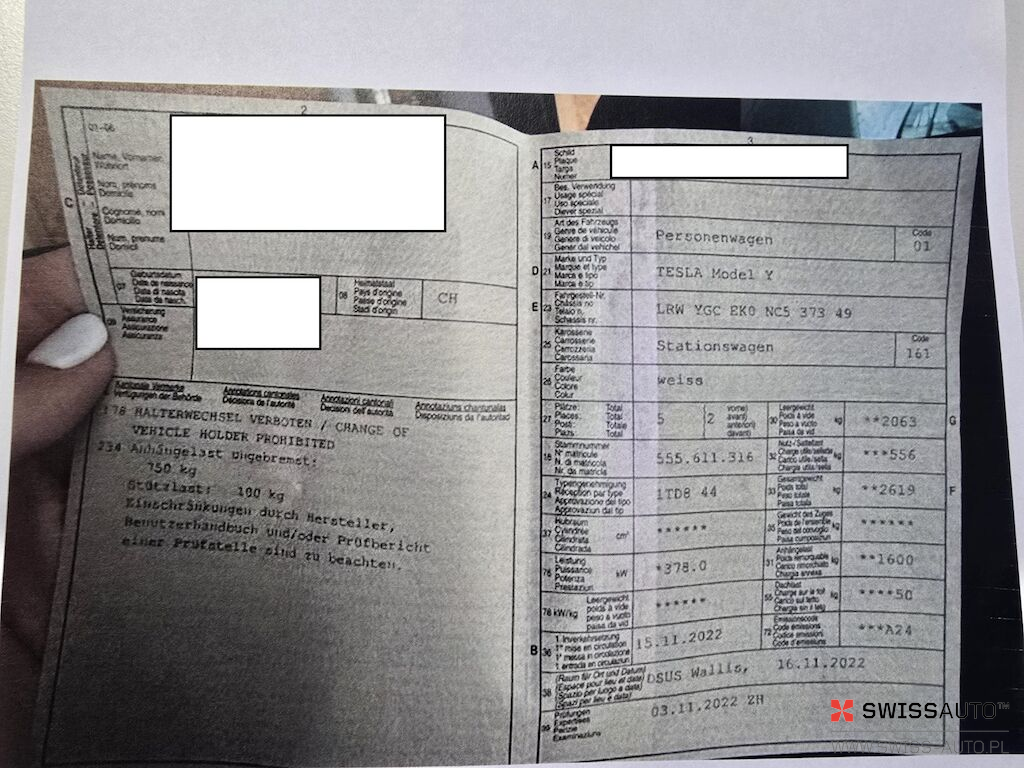 2
01-06
C
Name, Vornamen
Wohnort
Nom, prénoms
Domicile
Cognome, nomi
Domicilio
Num, prenums
Domicil
07
Geburtsdatum
Date de naissance
Data di nascita
Data da nasch.
08
Heimatstaat
Pays d'origine
Paese d'origine
Stadi d'origin
CH
09
Versicherung
Assurance
Assicurazione
Assicuranza
Kantonale Vermerke
Verfügungen der Behörde
Annotations cantonales
Décisions de l'autorité
Annotazioni cantonali
Decisioni dell'autorità
Annotaziuns chantunalas
Disposiziuns da l'autoritad
178 HALTERWECHSEL VERBOTEN / CHANGE OF
VEHICLE HOLDER PROHIBITED
234 Anhängelast ungebremst:
750 kg
Stützlast: 100 kg
Einschränkungen durch Hersteller,
Benutzerhandbuch und/oder Prüfbericht
einer Prüfstelle sind zu beachten.
3
A 15
Schild
Plaque
Targa
Numer
17
Bes. Verwendung
Usage spécial
Uso speciale
Diever spezial
19
Art des Fahrzeugs
Genre de véhicule
Genere di veicolo
Gener dal vehichel
Personenwagen
Code
01
D 21
Marke und Typ
Marque et type
Marca e tipo
Marca e tip
TESLA Model Y
E 23
Fahrgestell-Nr.
Châssis no
Telaio n.
Schassis nr.
LRW YGC EK0 NC5 373 49
25
Karosserie
Carrosserie
Carrozzeria
Carossaria
Stationswagen
Code
161
26
Farbe
Couleur
Colore
Colur
weiss
27
Plätze: Total
Places: Total
Posti: Totale
Plazs: Total
5
2
vorne)
avant)
anteriori)
davant)
30
Leergewicht
Poids à vide
Peso a vuoto
Paisa da vid
kg
**2063
G
18
Stammnummer
N° matricule
N. di matricola
Nr. da matricla
555.611.316
32
Nutz-/Sattellast
Charge utile/sellette
Carico utile/sella
Chargia utila/sella
kg
***556
24
Typengenehmigung
Réception par type
Approvazione del tipo
Approvaziun dal tip
1TD8 44
33
Gesamtgewicht
Poids total
Peso totale
Paisa totala
kg
**2619
F
37
Hubraum
Cylindrée
Cilindrata
Cilindrada
cm³
******
35
Gewicht des Zuges
Poids de l'ensemble
Peso del convoglio
Paisa cumposiziun
kg
******
76
Leistung
Puissance
Potenza
Prestaziun
kW
*378.0
31
Anhängelast
Poids remorquable
Carico rimorchiato
Chargia annexa
kg
**1600
78 kW/kg
Leergewicht
poids à vide
peso a vuoto
paisa da vid
******
55
Dachlast
Charge sur le toit
Carico sul tetto
Chargia sin il tetg
kg
****50
B 36
1. Inverkehrsetzung
1re mise en circulation
1a messa in circolazione
1. entrada en circulaziun
15.11.2022
72
Emissionscode
Code émissions
Codice emissioni
Code d'emissiuns
***A24
38
(Raum für Ort und Datum)
(Espace pour lieu et date)
(Spazio per luogo e data)
(Spazi per lieu e data)
DSUS Wallis, 16.11.2022
39
Prüfungen
Expertises
Perizie
Examinaziuns
03.11.2022 ZH
SWISSAUTO™
WWW.SWISS-AUTO.PL